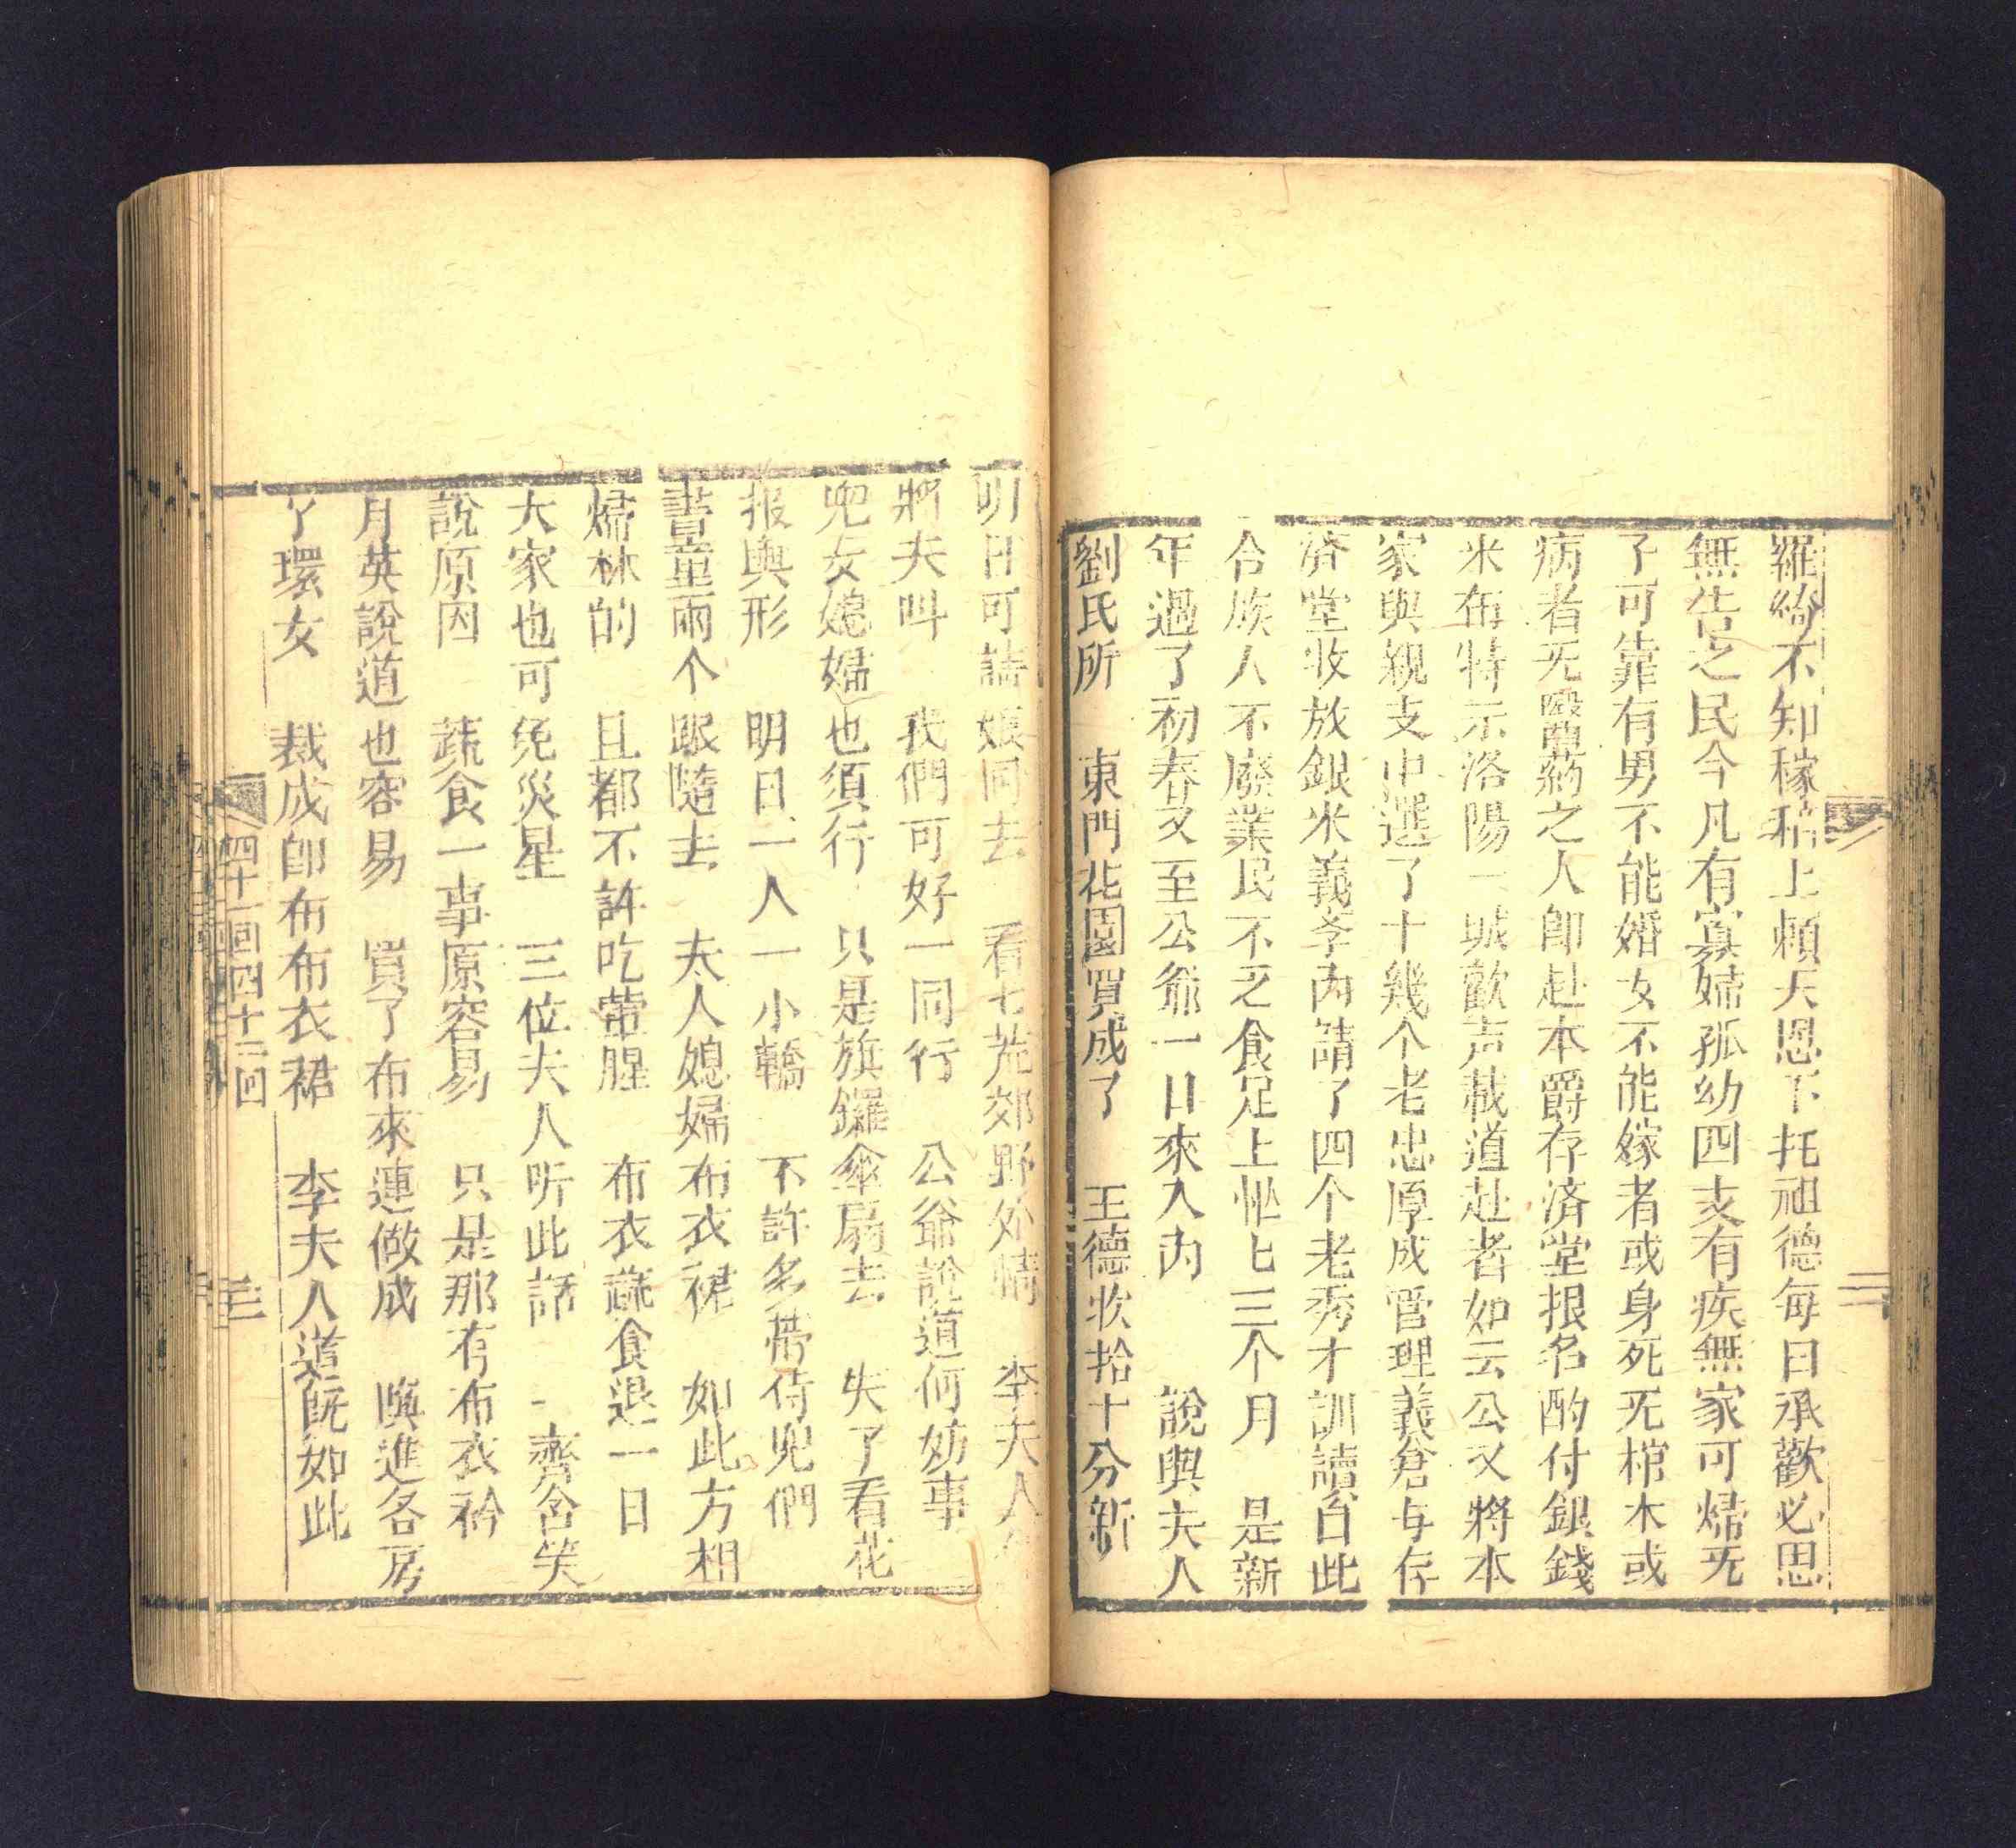 羅綺不知稼穡上頼天恩下托祖德每日承歡必思
無告之民今凡有寡婦孤幼四支有疾無家可㷌无
子可靠有男不能婚女不能嫁者或身死无棺木或
病者无醫藥之人卽赴本爵存済堂报名酌付銀錢
米布特示洛陽一城歡声载道赴者如云公又將本
家與親支中選了十幾个老忠厚成管理義倉与存
済堂收放銀米義斈內請了四个老秀才訓讀自此
合族人不廢業民不乏食足上忙七三个月　是新
年過了初春又至公爺一日來入內　說與夫人
劉氏所　東門花園買成了　王德收拾十分新
明日可請娘同去　看七荒郊野外情　李夫人
將夫叫　我們可好一同行　公爺說道何妨事
兒女媳婦也須行　只是旗鑼傘扇去　失了看花
报與形　明日一人一小轎　不許多帶侍兒們
書童兩个跟隨去　夫人媳婦布衣裙　如此方相
㷌林的　且都不許吃葷腥　布衣蔬食退一日
大家也可免災星　三位夫人听此話　一齊含笑
說原因　蔬食一事原容易　只是那有布衣衿
月英說道也容易　買了布來連做成　與進各房
丫環女　裁成卽布布衣裙　李夫人道旣如此
四十一回四十二回
三